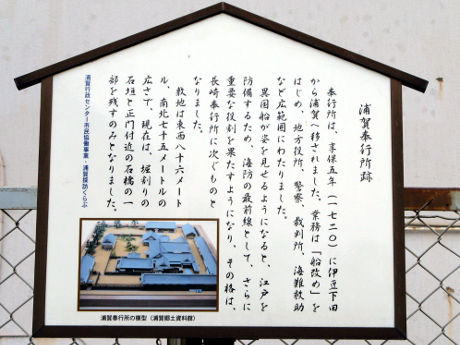 浦賀奉行所跡
奉行所は、享保五年(一七二〇)に伊豆下田
から浦賀へ移されました。業務は「船改め」を
はじめ、地方役所、警察、裁判所、海難救助
など広範囲にわたりました。
異国船が姿を見せるようになると、江戸を
防備するため、海防の最前線として、さらに
重要な役割を果たすようになり、その格は、
長崎奉行所に次ぐものと
なりました。
敷地は東西八十六メート
ル、南北七十五メートルの
広さで、現在は、堀割りの
石垣と正門付近の石橋の一
部を残すのみとなりました。
浦賀行政センター市民協働事業・浦賀探訪くらぶ
浦賀奉行所の模型(浦賀郷土資料館)